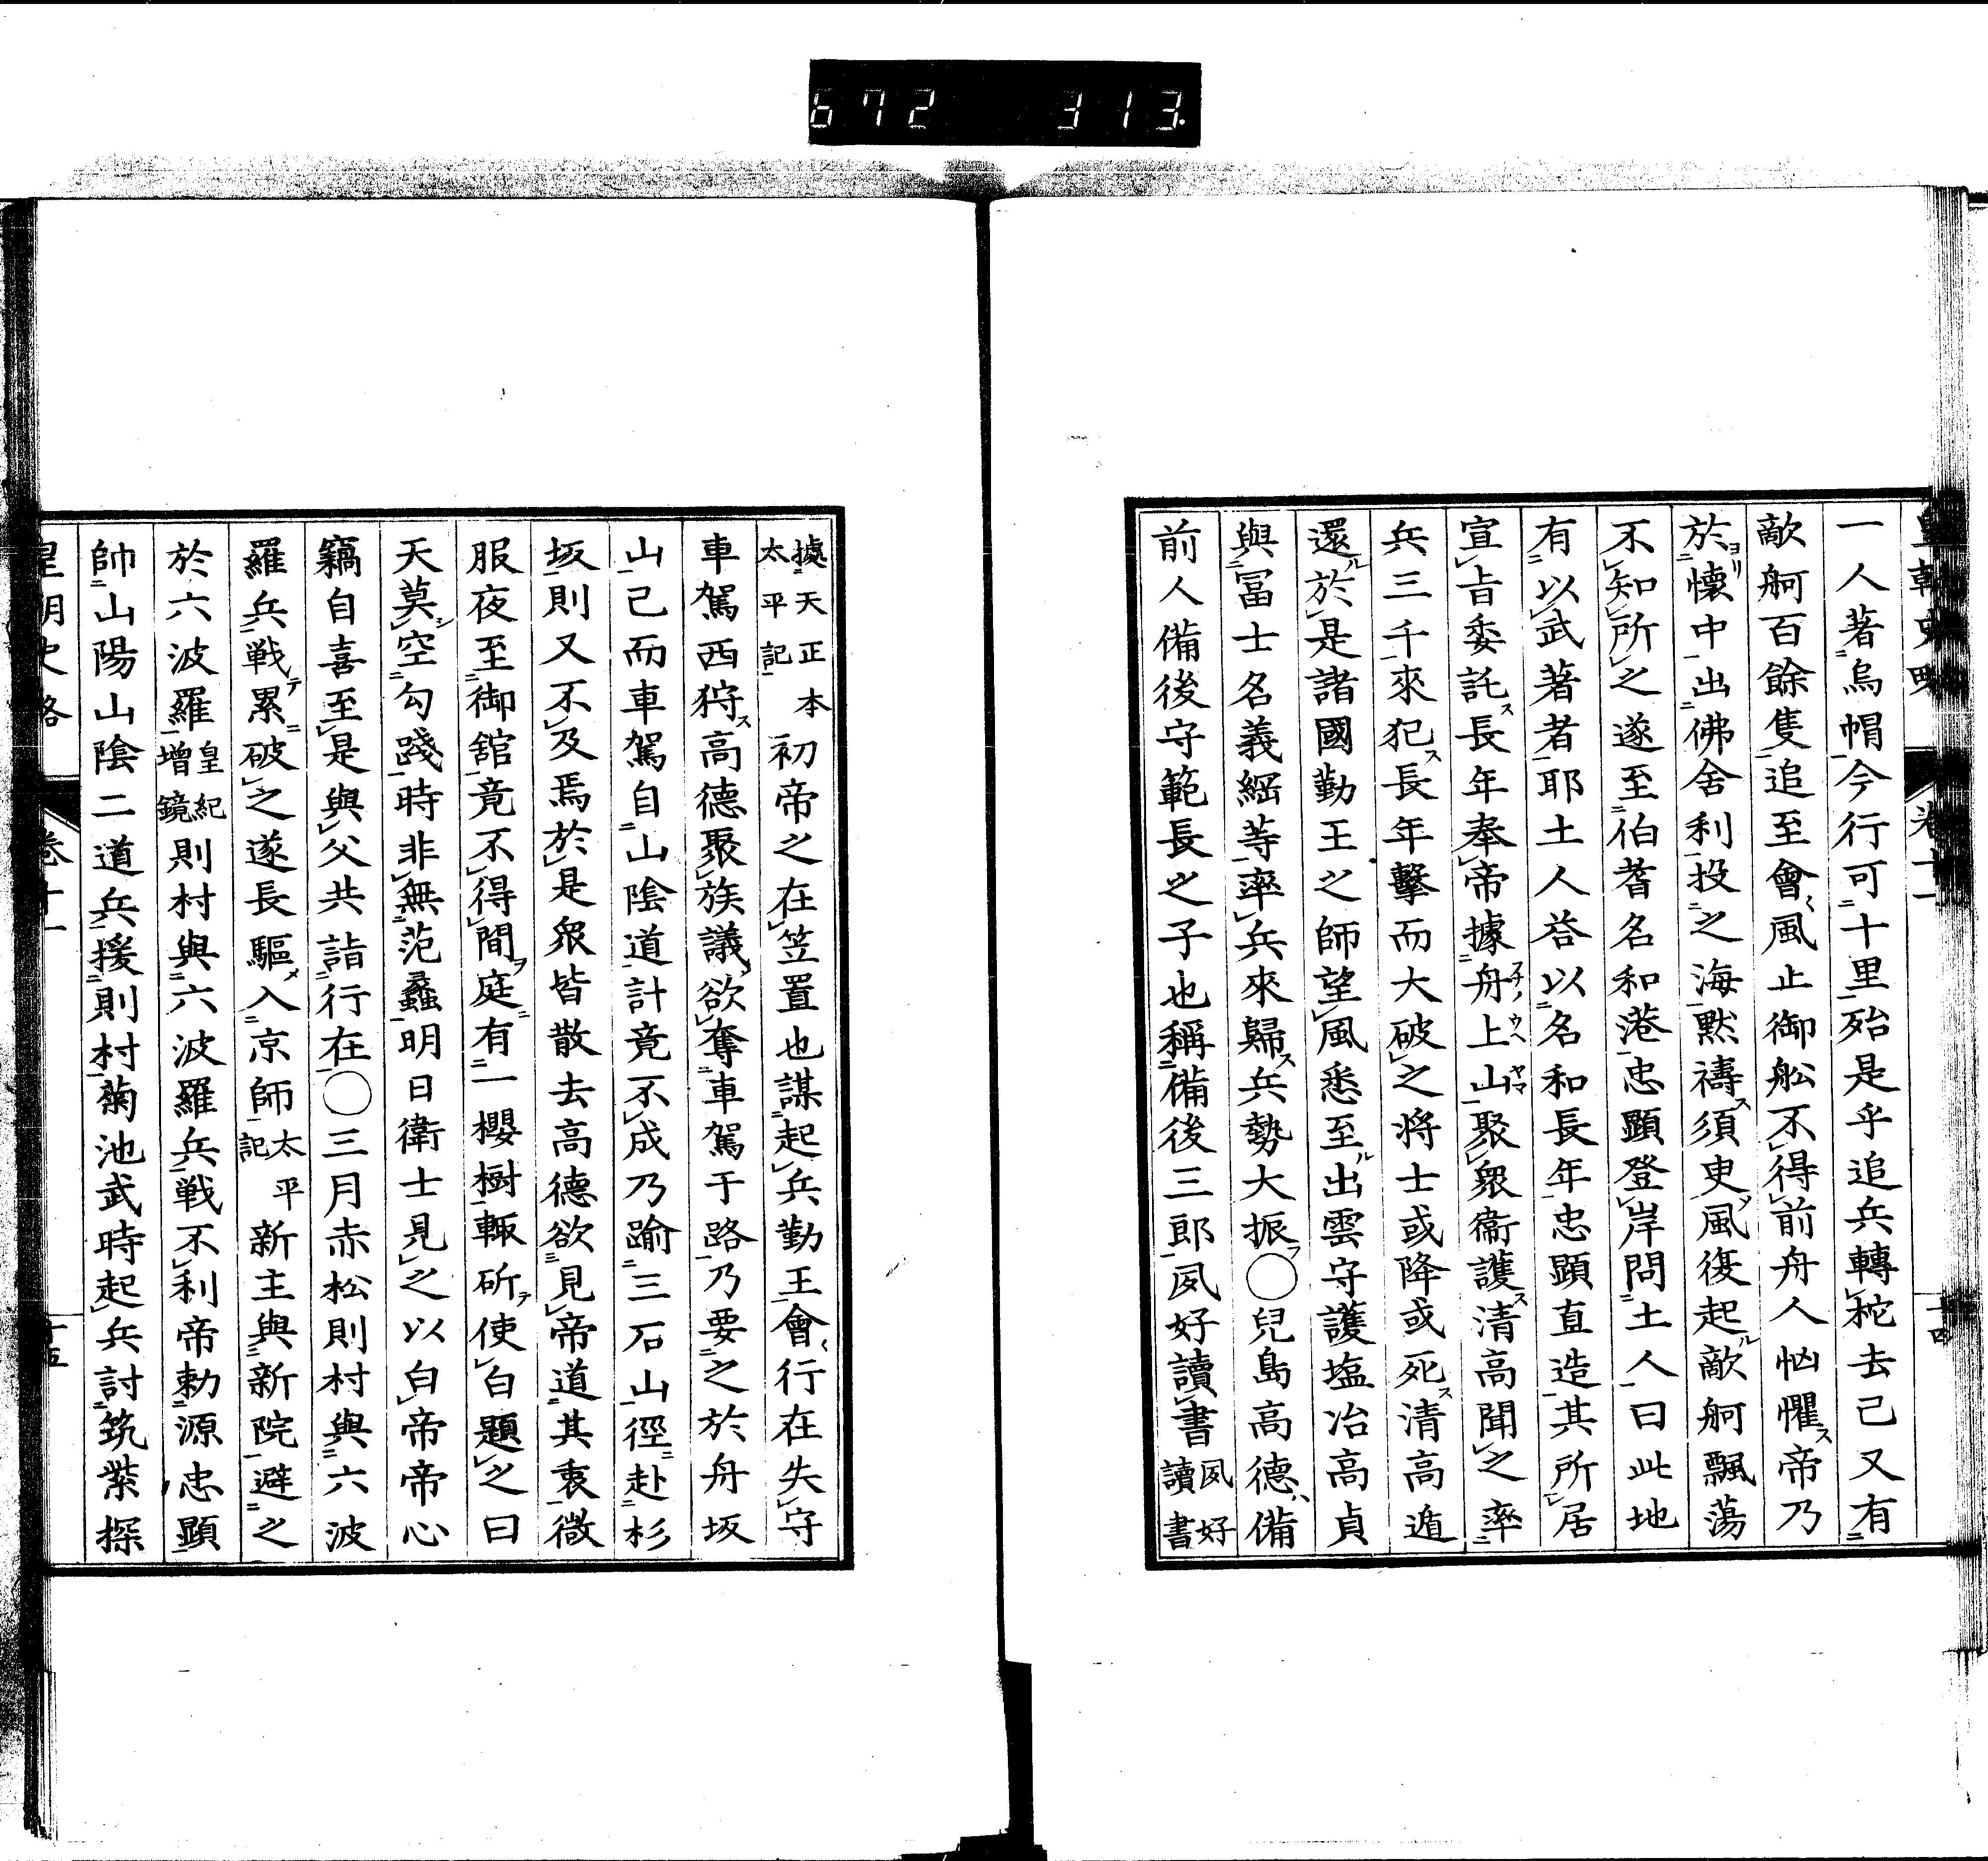 672 313.
皇朝史略 卷十一 十四
一人著烏帽今行可十里殆是乎追兵轉柁去已又有
敵舸百餘隻追至會風止御舩不得前舟人恟懼帝乃
於懷中出佛舍利投之海黙禱須臾風復起敵舸飄蕩
不知所之遂至伯耆名和港忠顕登岸問土人曰此地
有以武著者耶土人荅以名和長年忠顕直造其所居
宣旨委託長年奉帝據舟上山聚衆衞護清高聞之率
兵三千來犯長年擊而大破之将士或降或死清高遁
還於是諸國勤王之師望風悉至出雲守護塩冶高貞
與冨士名義綱等率兵來歸兵勢大振○兒島高德備
前人備後守範長之子也稱備後三郎夙好讀書夙好讀書
據天正本太平記初帝之在笠置也謀起兵勤王會行在失守
車駕西狩高德聚族議欲奪車駕于路乃要之於舟坂
山已而車駕自山陰道計竟不成乃踰三石山徑赴杉
坂則又不及焉於是衆皆散去高德欲見帝道其衷微
服夜至御舘竟不得間庭有一櫻樹輙斫使白題之曰
天莫空勾踐時非無范蠡明日衛士見之以白帝帝心
竊自喜至是與父共詣行在○三月赤松則村與六波
羅兵戦累破之遂長驅入京師太平記新主與新院避之
於六波羅皇紀增鏡則村與六波羅兵戦不利帝勅源忠顕
帥山陽山陰二道兵援則村菊池武時起兵討筑紫探
皇朝史略 卷十一 十五